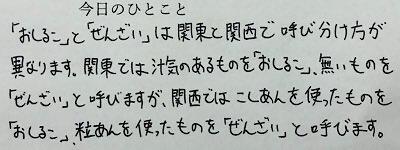 今日のひとこと
「おしるこ」と「ぜんざい」は関東と関西で呼び分け方が
異なります。関東では汁気のあるものを「おしるこ」、無いものを
「ぜんざい」と呼びますが、関西ではこしあんを使ったものを
「おしるこ」、粒あんを使ったものを「ぜんざい」と呼びます。